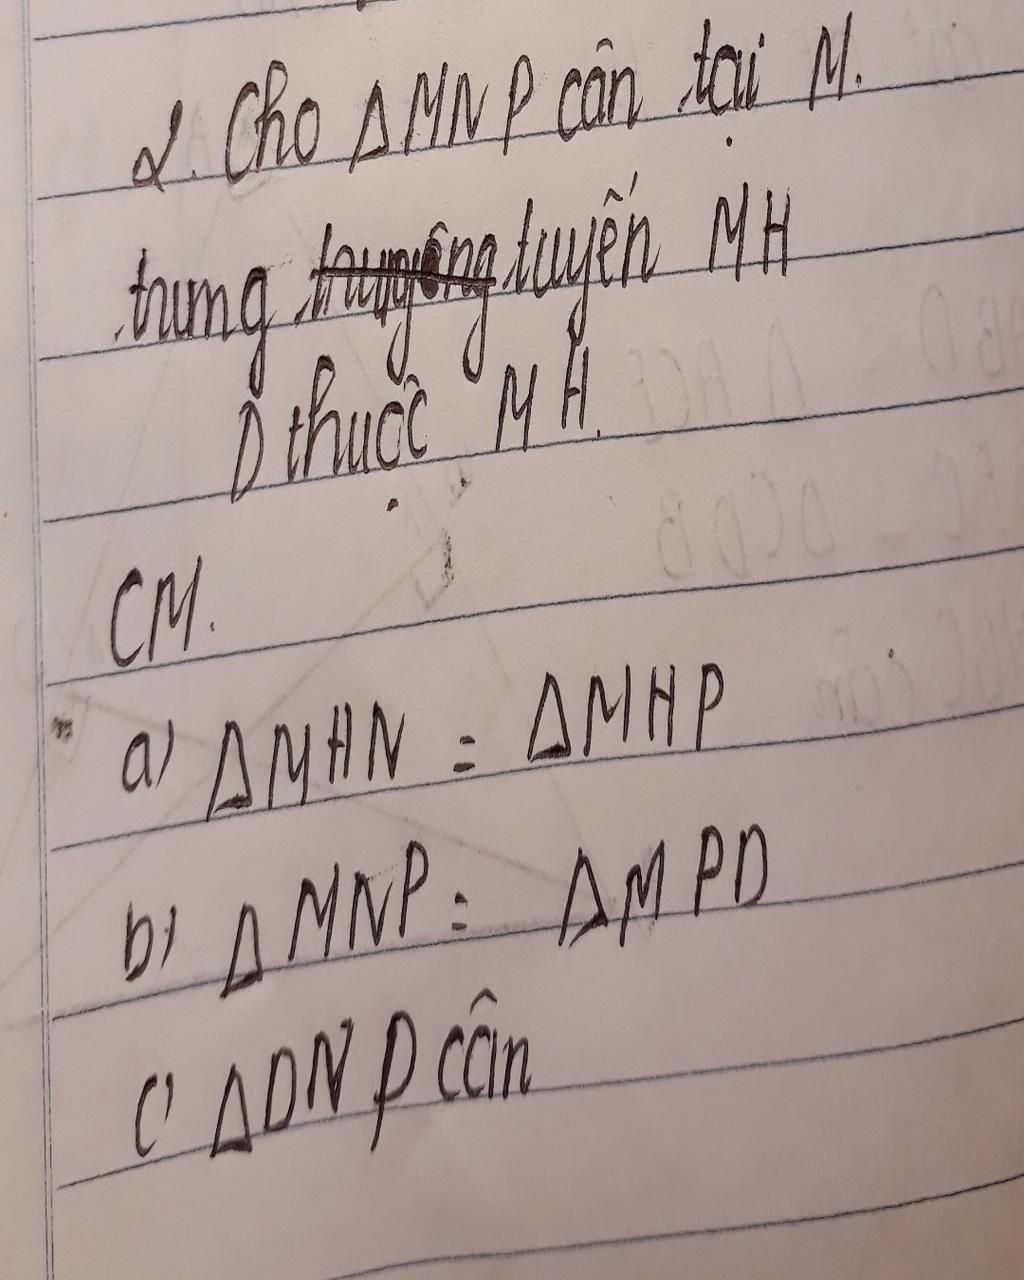 2. Cho Δ MNP cân tại M.
trung tuyến MH
D thuộc MH.
CM.
a) ΔMHN = ΔMHP
b) Δ MNP = ΔMPD
c) ΔDNP cân